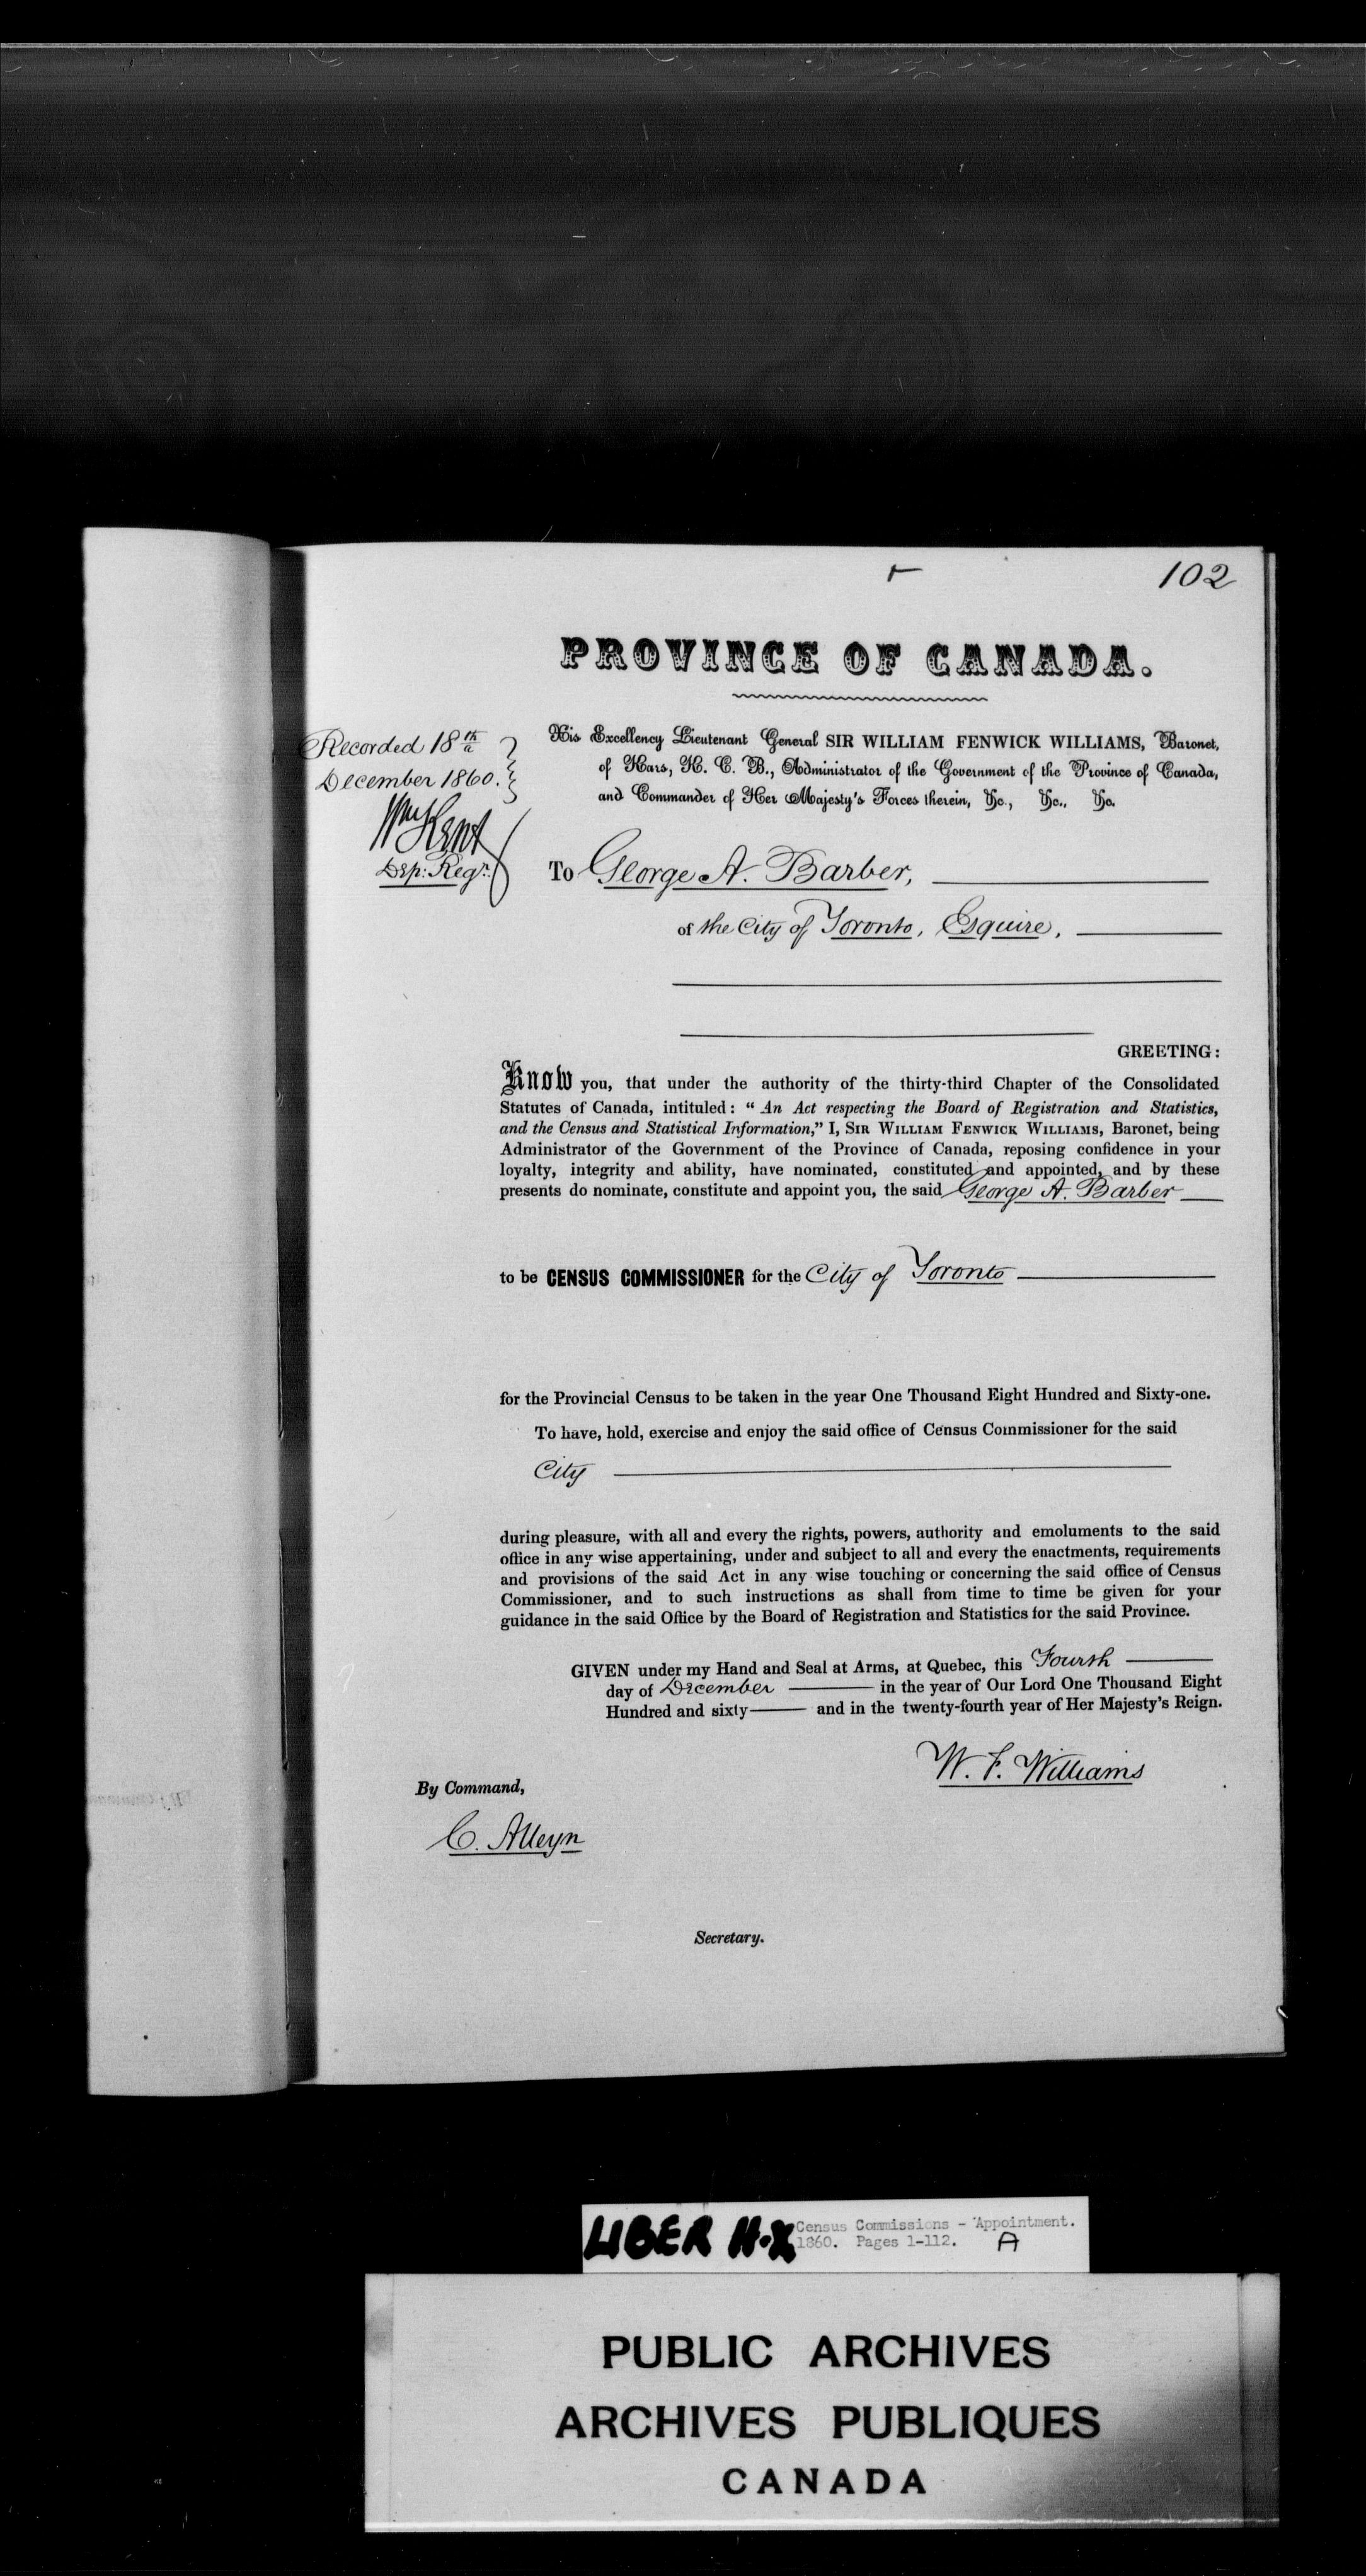 102
PROVINCE OF CANADA.
Recorded 18th
December 1860.
Wm Kent
Dep: Regr.
His Excellency Lieutenant General SIR WILLIAM FENWICK WILLIAMS, Baronet,
of Kars, K. C. B., Administrator of the Government of the Province of Canada,
and Commander of Her Majesty's Forces therein, &c., &c., &c.
To George A. Barber,
of the City of Toronto, Esquire,
GREETING:
Know you, that under the authority of the thirty-third Chapter of the Consolidated
Statutes of Canada, intituled: "An Act respecting the Board of Registration and Statistics,
and the Census and Statistical Information," I, SIR WILLIAM FENWICK WILLIAMS, Baronet, being
Administrator of the Government of the Province of Canada, reposing confidence in your
loyalty, integrity and ability, have nominated, constituted and appointed, and by these
presents do nominate, constitute and appoint you, the said George A. Barber
to be CENSUS COMMISSIONER for the City of Toronto
for the Provincial Census to be taken in the year One Thousand Eight Hundred and Sixty-one.
To have, hold, exercise and enjoy the said office of Census Commissioner for the said
City
during pleasure, with all and every the rights, powers, authority and emoluments to the said
office in any wise appertaining, under and subject to all and every the enactments, requirements
and provisions of the said Act in any wise touching or concerning the said office of Census
Commissioner, and to such instructions as shall from time to time be given for your
guidance in the said Office by the Board of Registration and Statistics for the said Province.
GIVEN under my Hand and Seal at Arms, at Quebec, this Fourth
day of December in the year of Our Lord One Thousand Eight
Hundred and sixty and in the twenty-fourth year of Her Majesty's Reign.
W. F. Williams
By Command,
C. Alleyn
Secretary.
LIBER H.X Census Commissions - Appointment.
1860. Pages 1-112. A
PUBLIC ARCHIVES
ARCHIVES PUBLIQUES
CANADA